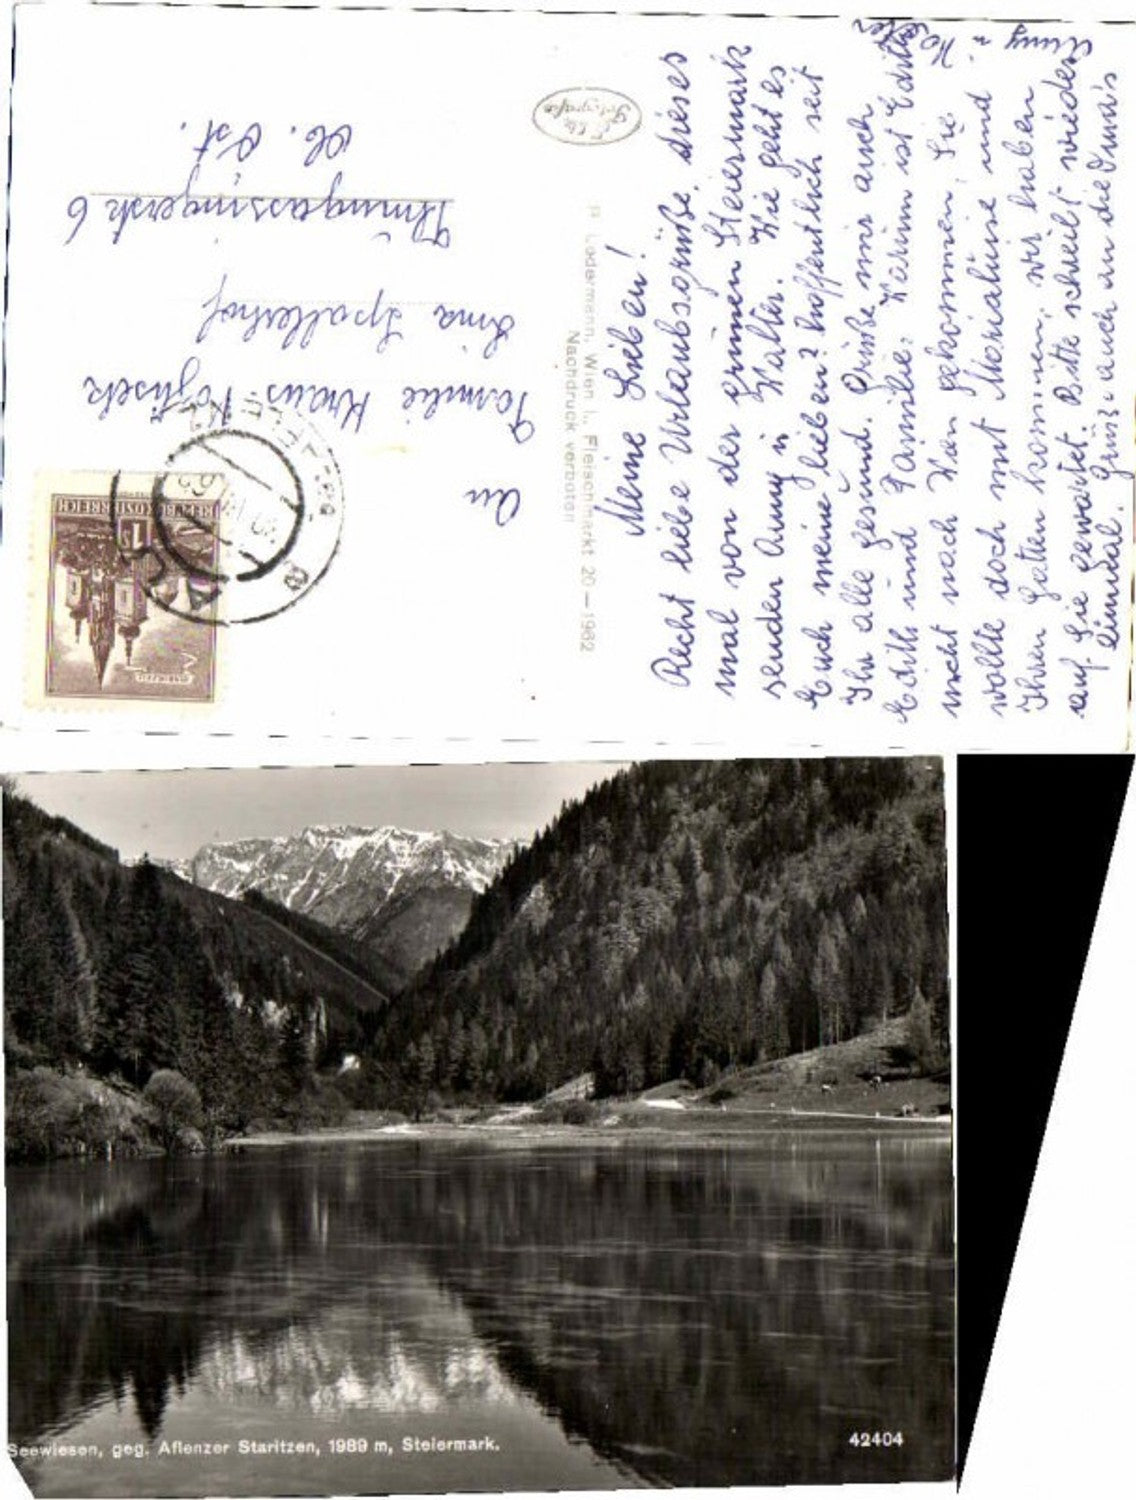 Meine Lieben!
Recht liebe Urlaubsgrüße dieses
mal von der grünen Steiermark
senden Anny u Walter. Wie geht es
Euch meine lieben? hoffentlich seit
Ihr alle gesund. Grüße mir auch
Edith und Familie. Karin ist
nicht nach Wien gekommen. Sie
wollte doch mit Marialuise und
Ihren Gatten kommen, wir haben
auf Sie gewartet. Bitte schreibt wieder
einmal. Grüße auch an die
Anny u.
An
Familie Kraus
Pühringassingerstr 6
Ob. Öst.
Ledermann, Wien I., Fleischmarkt 20 — 1962
Nachdruck verboten
REPUBLIK ÖSTERREICH
Seewiesen, geg. Aflenzer Staritzen, 1989 m, Steiermark.
42404